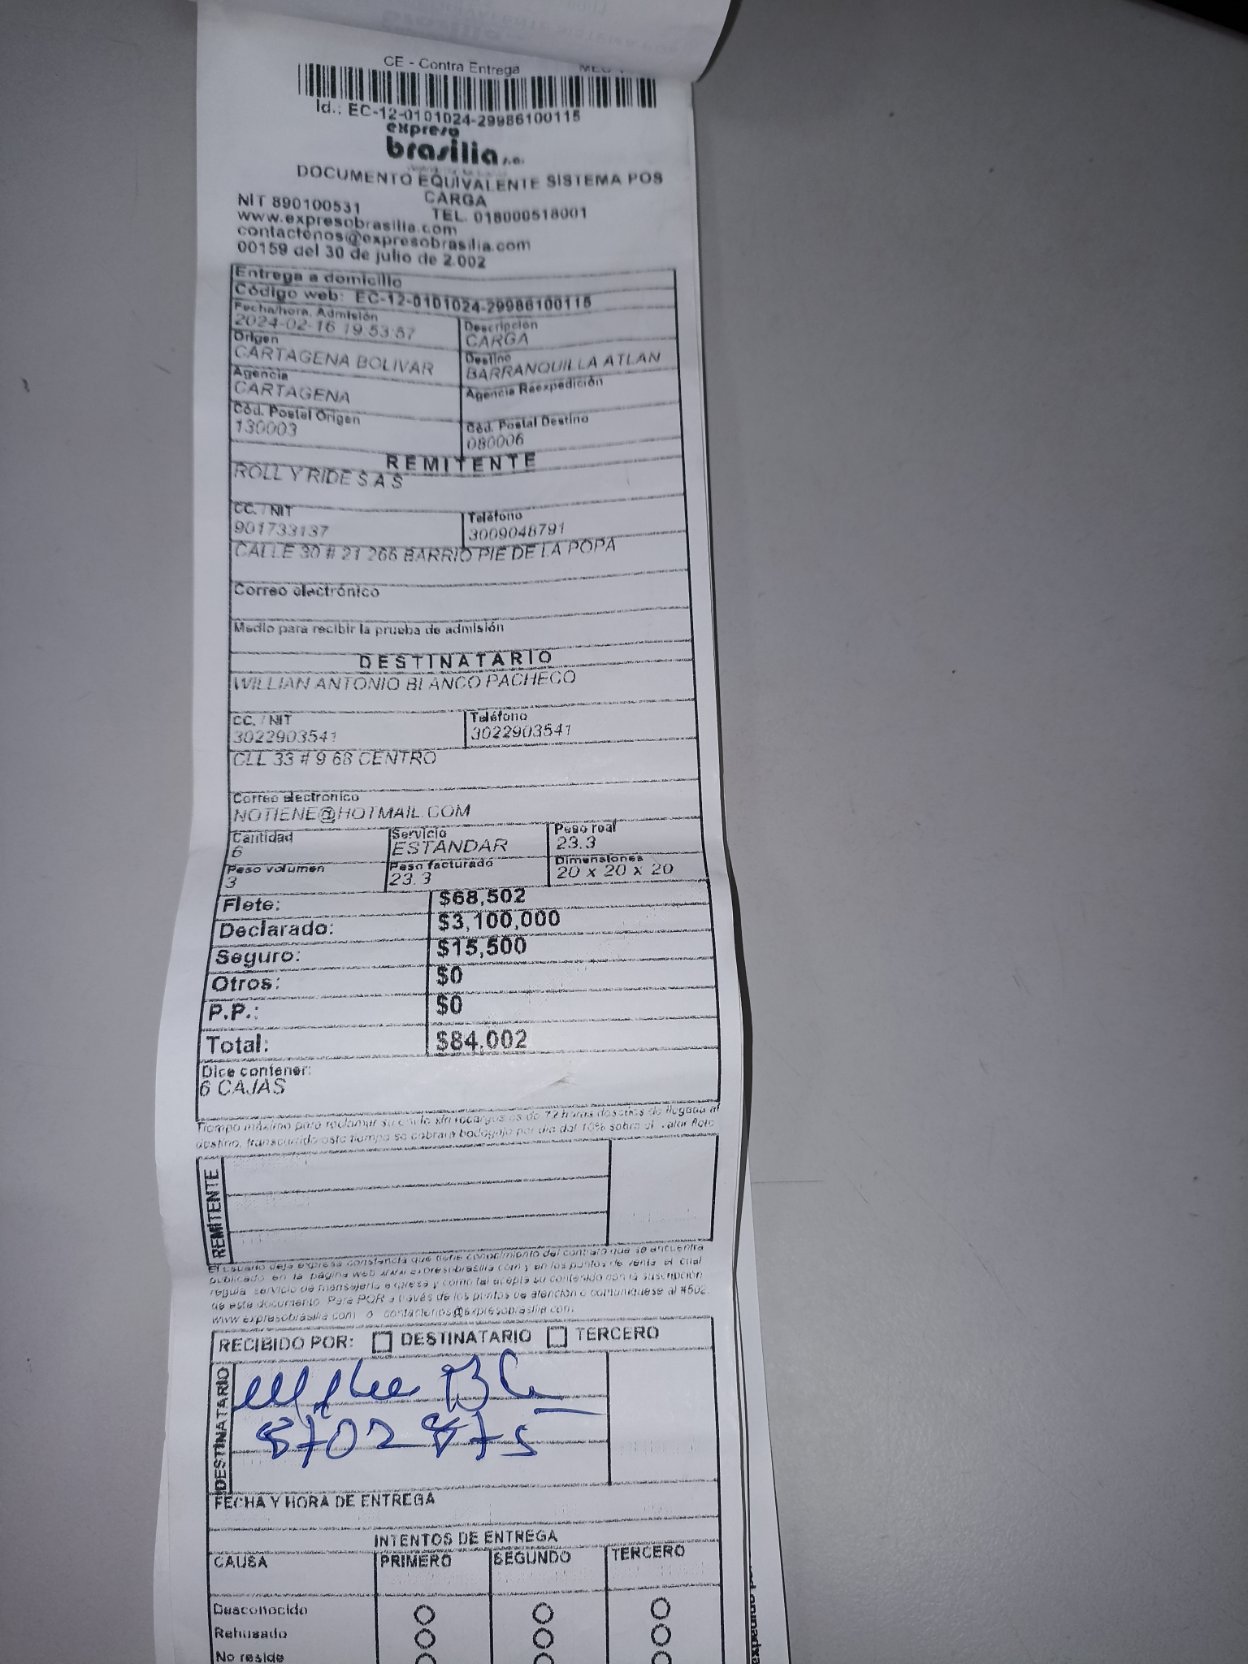 CE - Contra Entrega
Id.: EC-12-0101024-29986100115
expreso
brasilia s.a.
DOCUMENTO EQUIVALENTE SISTEMA POS
CARGA
NIT 890100531 TEL. 018000518001
www.expresobrasilia.com
contactenos@expresobrasilia.com
00159 del 30 de julio de 2.002
Entrega a domicilio
Código web: EC-12-0101024-29986100115
Fecha/hora. Admisión Descripción
2024-02-16 19:53:57 CARGA
Origen Destino
CARTAGENA BOLIVAR BARRANQUILLA ATLAN
Agencia Agencia Reexpedición
CARTAGENA
Cód. Postal Origen Cód. Postal Destino
130003 080006
REMITENTE
ROLL Y RIDE S A S
CC. / NIT Teléfono
901733137 3009048791
CALLE 30 # 21 266 BARRIO PIE DE LA POPA
Correo electrónico
Medio para recibir la prueba de admisión
DESTINATARIO
WILLIAN ANTONIO BLANCO PACHECO
CC. / NIT Teléfono
3022903541 3022903541
CLL 33 # 9 68 CENTRO
Correo electronico
NOTIENE@HOTMAIL.COM
Cantidad Servicio Peso real
6 ESTANDAR 23.3
Peso volumen Peso facturado Dimensiones
3 23.3 20 x 20 x 20
Flete: $68,502
Declarado: $3,100,000
Seguro: $15,500
Otros: $0
P.P.: $0
Total: $84,002
Dice contener:
6 CAJAS
Tiempo máximo para reclamar su envío sin recargos es de 72 horas después de llegada al
destino, transcurrido este tiempo se cobrara bodegaje por día del 10% sobre el valor flete
REMITENTE
El usuario deja expresa constancia que tiene conocimiento del contrato que se encuentra
publicado en la página web www.expresobrasilia.com y en los puntos de venta el cual
regula servicio de mensajería expresa y como tal acepta su contenido con la suscripción
de este documento. Para PQR a través de los puntos de atención o comuníquese al #502
www.expresobrasilia.com o contactenos@expresobrasilia.com
RECIBIDO POR: DESTINATARIO TERCERO
DESTINATARIO
8702875
FECHA Y HORA DE ENTREGA
INTENTOS DE ENTREGA
CAUSA PRIMERO SEGUNDO TERCERO
Desconocido
Rehusado
No reside